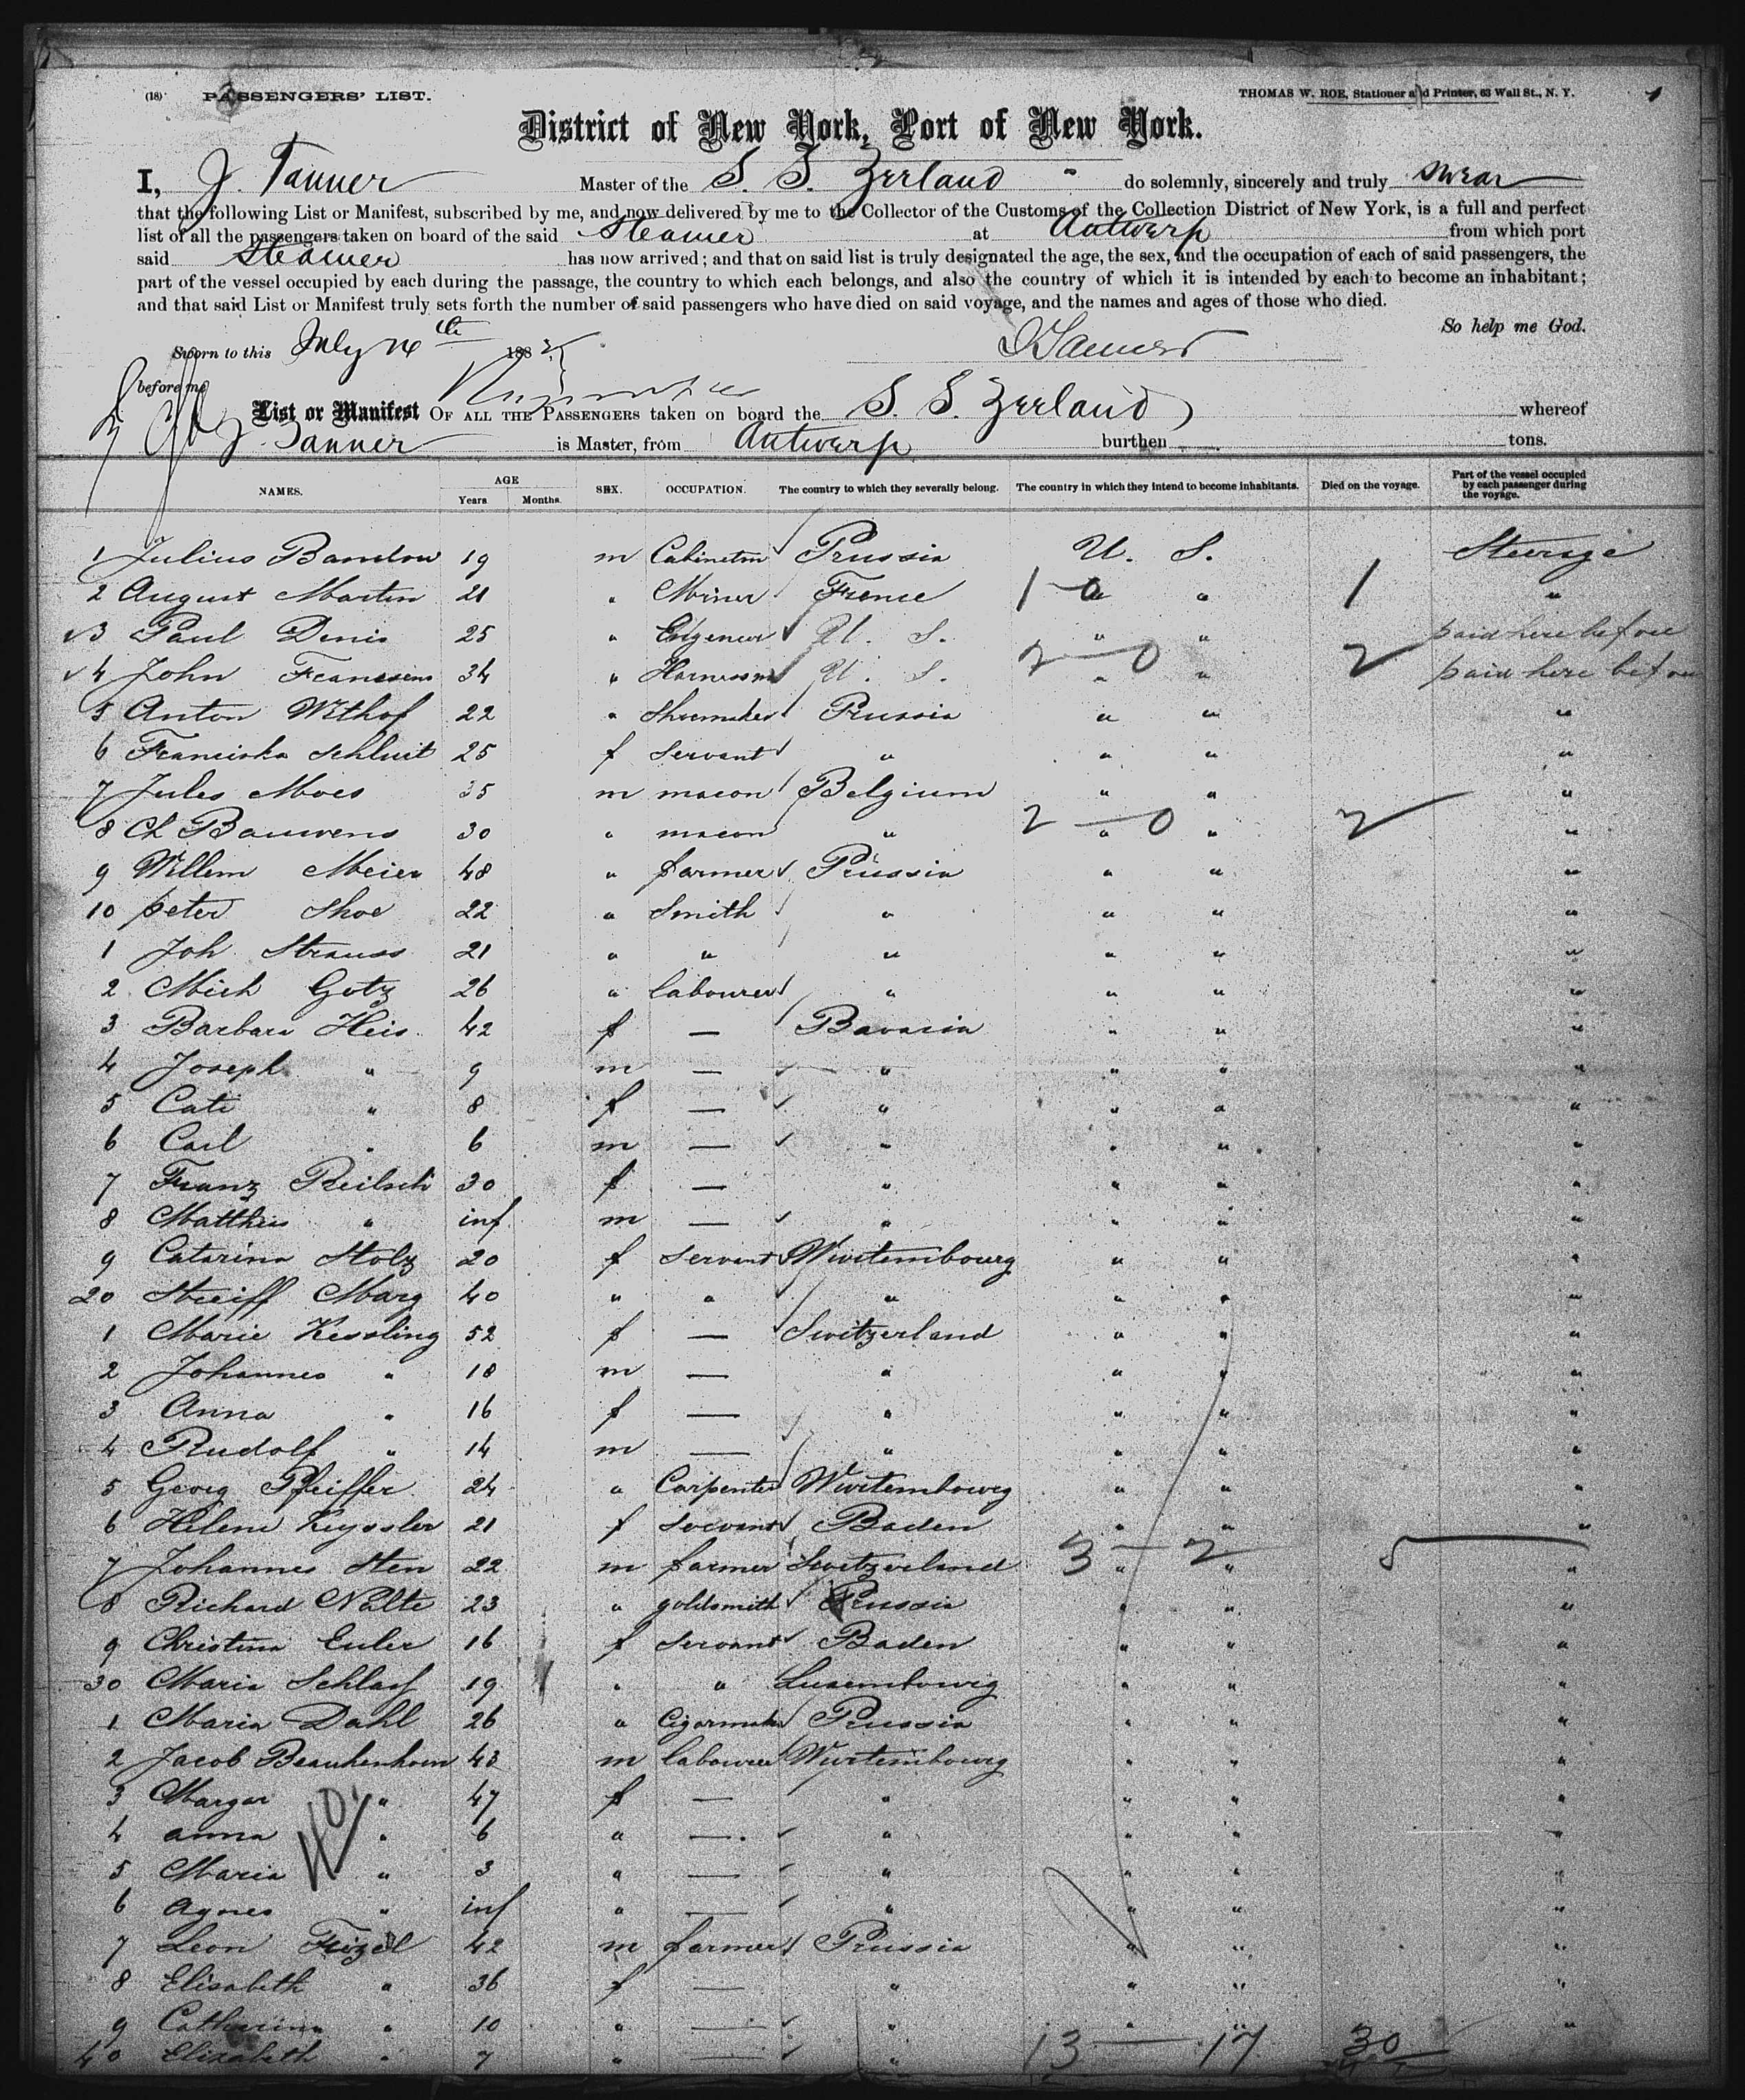 (18) PASSENGERS' LIST.
THOMAS W. ROE, Stationer and Printer, 63 Wall St., N. Y.
1
District of New York, Port of New York.
I, J. Tanner Master of the S. S. Zeeland do solemnly, sincerely and truly swear
that the following List or Manifest, subscribed by me, and now delivered by me to the Collector of the Customs of the Collection District of New York, is a full and perfect
list of all the passengers taken on board of the said Steamer at Antwerp from which port
said Steamer has now arrived; and that on said list is truly designated the age, the sex, and the occupation of each of said passengers, the
part of the vessel occupied by each during the passage, the country to which each belongs, and also the country of which it is intended by each to become an inhabitant;
and that said List or Manifest truly sets forth the number of said passengers who have died on said voyage, and the names and ages of those who died.
So help me God.
Sworn to this July 14th 1882 J Tanner
before me
List or Manifest OF ALL THE PASSENGERS taken on board the S. S. Zeeland whereof
J. Tanner is Master, from Antwerp burthen tons.
NAMES. AGE Years Months. SEX. OCCUPATION. The country to which they severally belong. The country in which they intend to become inhabitants. Died on the voyage. Part of the vessel occupied by each passenger during the voyage.
1 Julius 19 m Prussia U. S. Steerage
2 August Martin 21 " Miner France 1 0 " " 1 "
3 Paul Denis 25 " Engeneur U. S. " " paid here before
4 John 34 " U. S. 2 — 0 " " 2 paid here before
5 Anton Withof 22 " Shoemaker Prussia " " "
6 Franciska 25 f servant " " " "
7 Jules Moes 35 m macon Belgium " " "
8 Ch Bauwens 30 " macon " 2 — 0 " " 2 "
9 Willem Meier 48 " farmer Prussia " " "
10 peter Shoe 22 " Smith " " " "
1 Joh Strauss 21 " " " " " "
2 Mich Gotz 26 " labourer " " " "
3 Barbara Heis 42 f — Bavaria " " "
4 Joseph " 9 m — " " " "
5 Cati " 8 f — " " " "
6 Carl " 6 m — " " " "
7 Franz 30 f — " " " "
8 Matthis " inf. m — " " " "
9 Catarina Stolz 20 f servant Wurtembourg " " "
20 Streiff Marg 40 " " " " " "
1 Marie Kessling 52 f — Switzerland " " "
2 Johannes " 18 m — " " " "
3 Anna " 16 f — " " " "
4 Rudolf " 14 m — " " " "
5 Georg Pfeiffer 24 " Carpenter Wurtembourg " " "
6 Helene Keyssler 21 f servant Baden " " "
7 Johannes Sten 22 m farmer Switzerland 3 — 2 " " 5 "
8 Richard Nolte 23 " goldsmith Prussia " " "
9 Christina Euler 16 f servant Baden " " "
30 Maria 19 " " Luxembourg " " "
1 Maria Dahl 26 " Cigarmaker Prussia " " "
2 Jacob 43 m labourer Wurtembourg " " "
3 Margar " 47 f — " " " "
4 anna " 6 " — " " " "
40
5 Maria " 3 " — " " " "
6 Agnes " inf " — " " " "
7 Leon 42 m farmer Prussia " " "
8 Elisabeth " 36 f — " " " "
9 Catharina " 10 " — " " " "
40 Elizabeth " 7 " — " 13 — 17 30